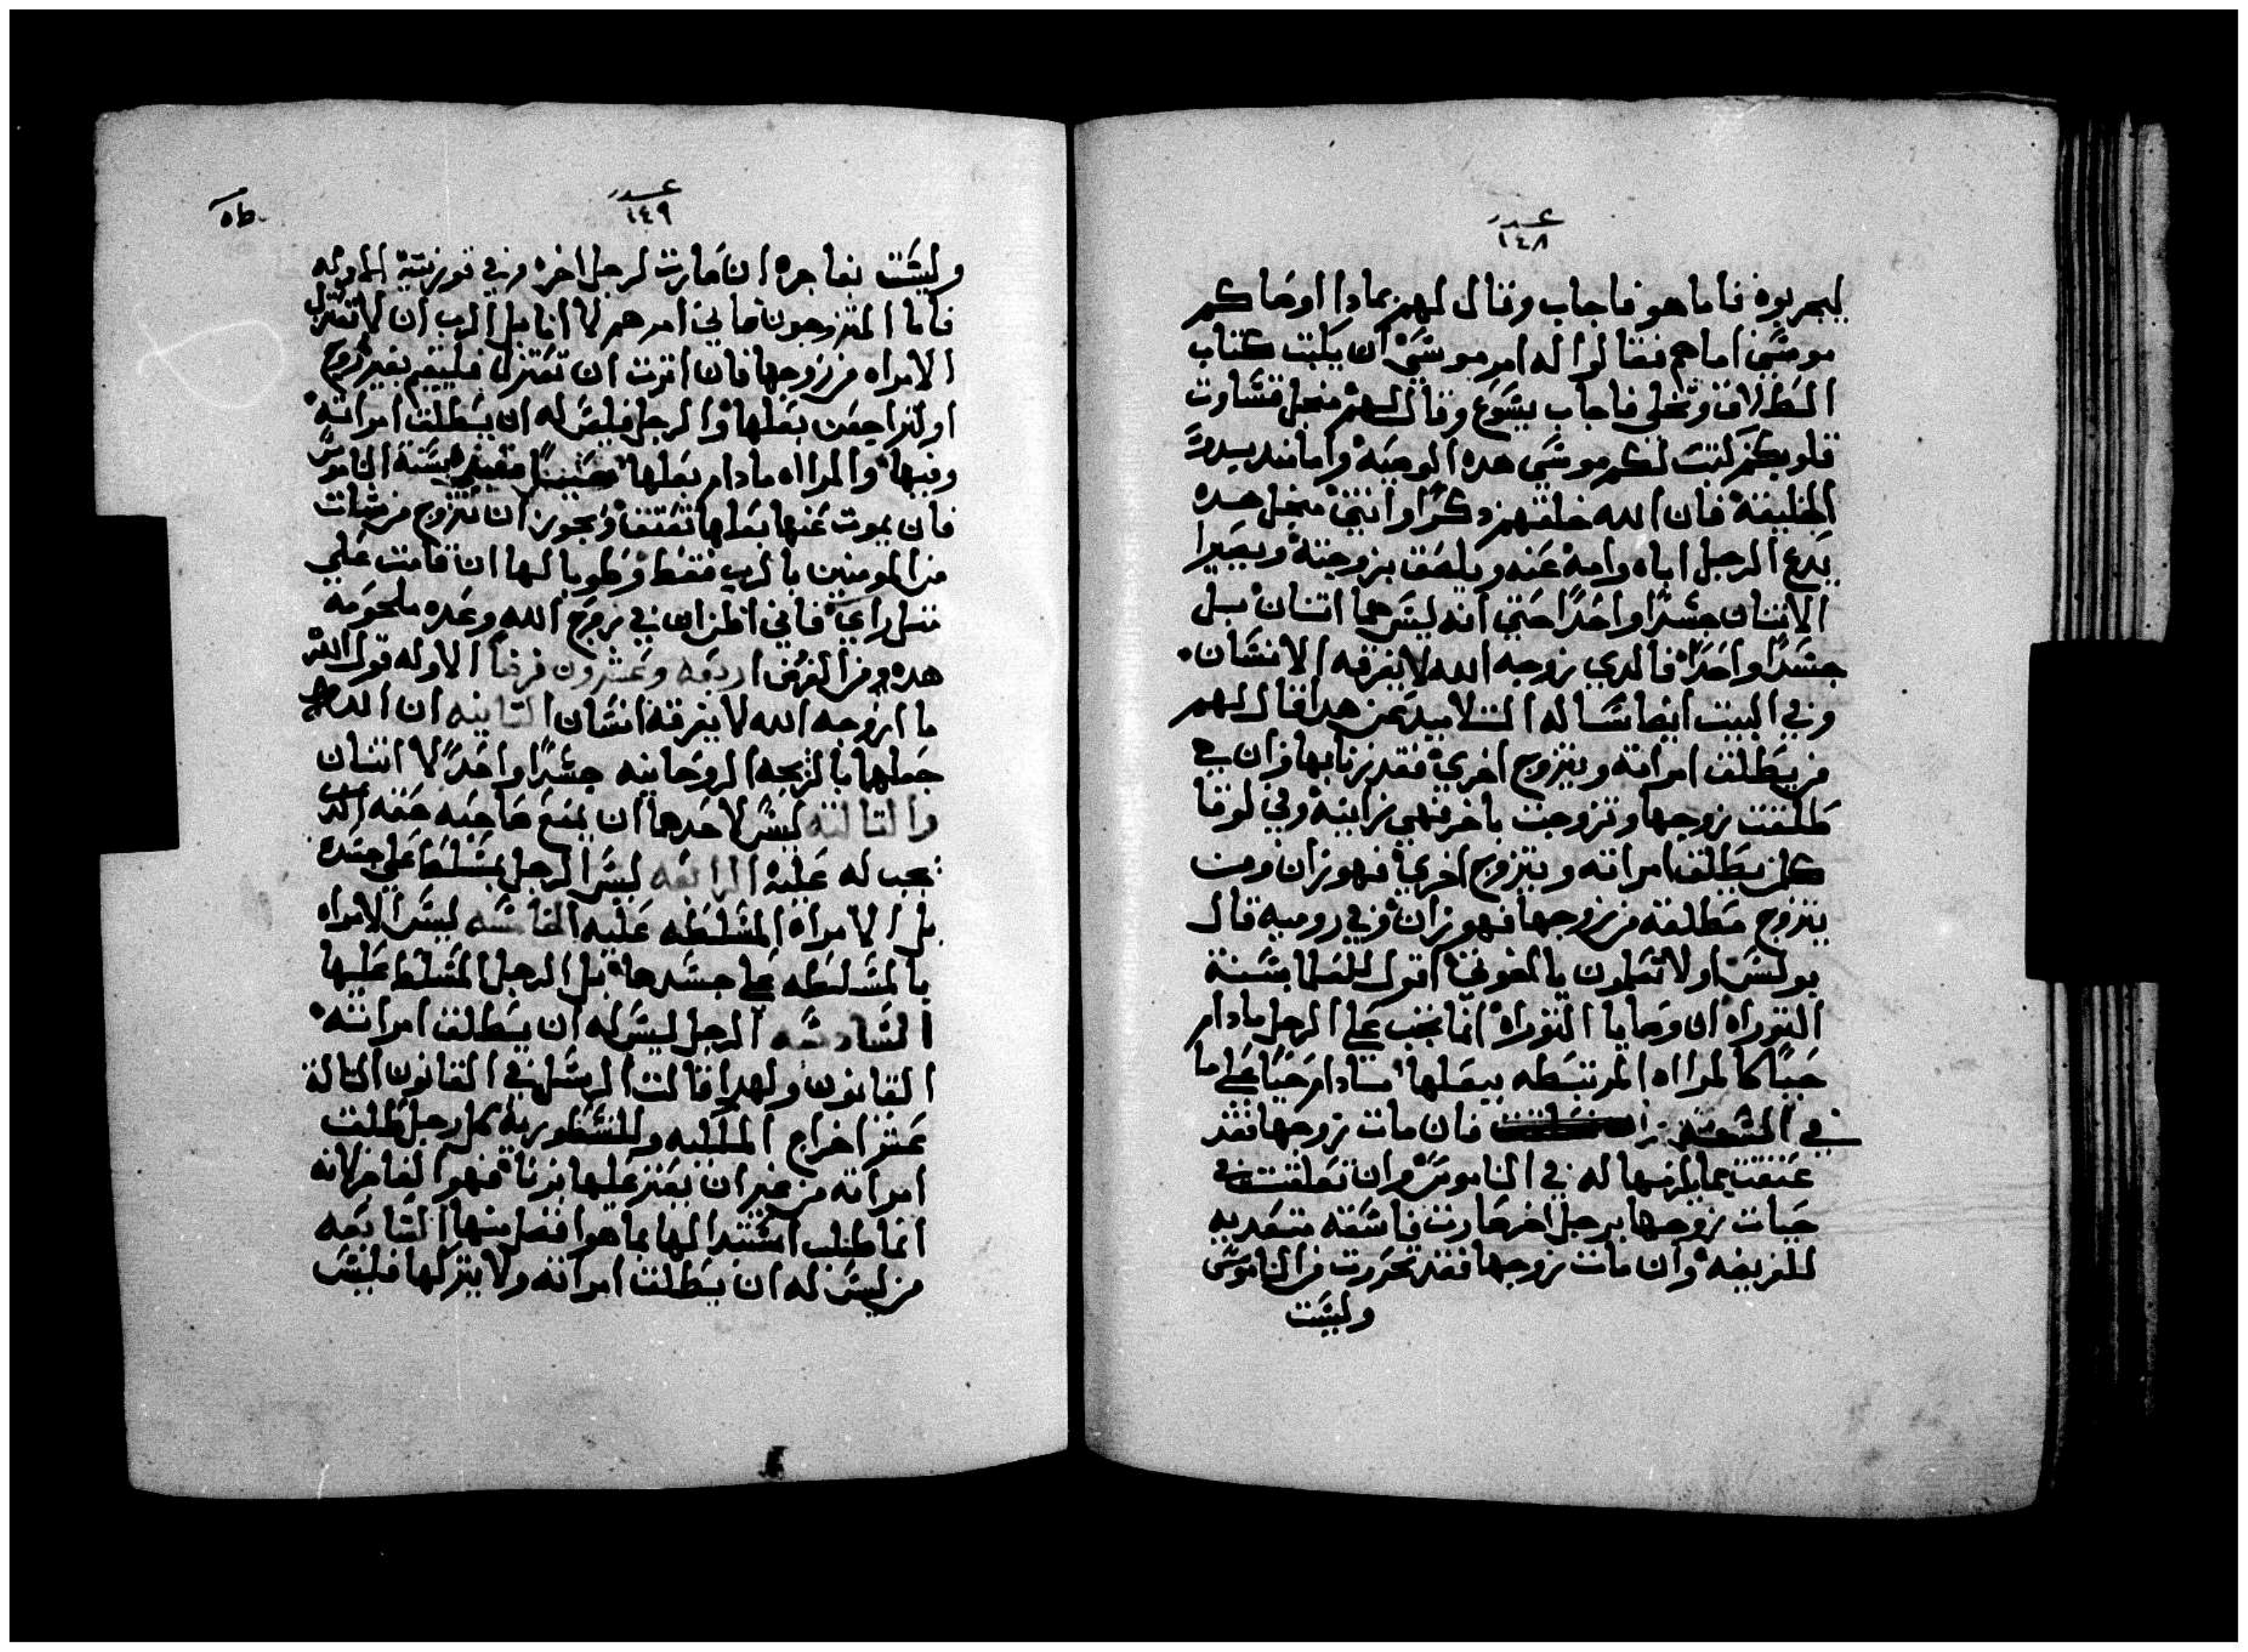 عدد
١٤٨
ليجربوه فاما هو فاجاب وقال لهم بمادا اوصاكم
موسَى اما هم فقالوا له امر موسَى ان يكتب كتاب
الطلاق وتخلى فاجاب يسَوع وقال لهم منجل قسَاوت
قلوبكم كتب لكم موسَى هده الوصَيه واما مند بدو
الخليقة فان الله خلقهم دكرًا وانتى منجل هده
يدع الرجل اباه وامه عَنه ويلصَق بزوجته ويصَيرا
الاتنان جسَدًا واحَدًا حَتي انه ليسَ هما اتنان بل
جسَدًا واحَدًا فالدي زوجه الله لا يفرقه الانسَان.
وفي البيت ايضا سَاله التلاميد عَن هدا فقال لهم
من يطَلق امراته ويتزوج اخري فقد زنا بها وان هي
طَلقت زوجها وتزوجت باخر فهي زانيه وفي لوقا
كلمن يطَلق امراته ويتزوج اخري فهو زان ومن
يتزوج مطَلقه من زوجها فهو زان وفي روميه قال
بولسَ اولا تعَلمون يا اخوتي اقول للعَلما بسَنة
التوراه ان وصَايا التوراه انما تجب عَلي الرجل مادام
حَيًا كالمرااه المرتبَطه ببعَلها مادام حَيًا عَلي ما
في السنه فان مات زوجها فقد
عَتقت مما يلزمها له في الناموسَ وان تعَلقت في
حَيات زوجها برجل اخر صَارت فاسَقه متعَديه
للفريضه وان مات زوجها فقد تحَررت من الناموسَ
وليسَت
عدد
١٤٩
وليسَت بفاجره ان صَارت لرجل اخر وفي قورنتيه الاوله
فاما المتزوجون فاني امرهم لا انا بل الرب ان لا تعَتزل
الامراه من زوجها فان اترت ان تعَتزل فليقم بغير زوج
او لتراجعَن بعَلها والرجل فليسَ له ان يطَلق امراته
وفيها والمرااه مادام بعَلها حَيًا مقيده بسَنة الناموسَ
فان يموت عَنها بعَلها تعَتق ويجوز ان تتزوج من شات
من المومنين بالرب فقطَ وطَوبا لها ان قامت عَلي
متل راي فاني اظن ان في روح الله وعَده ملحَومه
هده ومن الفرق اربعَه وعَشرون فرقاً الاوله قول الله
ما ازوجه الله لا يفرقه انسَان التانيه ان الله
جعَلهما بالزيجه الروحَانيه جسَدًا واحَدًا لا اتنان
والتالته ليسَ لاحَدهما ان يمنع صَاحَبه حَقه الدي
يجب له عَليه الرابعَه ليسَ الرجل بمسَلطَ عَلي جسَده
بل الامراه المسَلطَه عَليه الخامسَه ليسَ الامراه
بالمسَلطَه عَلي جسَدها بل الرجل المسَلط عَليها
السَادسَه الرجل ليسَ له ان يطَلق امراته
القانون ولهدا قالت الرسَل في القانون التالة
عَشر اخراج الملكيه وللنسَطوريه كل رجل طَلق
امراته من غير ان يعَتر عَليها بزنا فهو الفا من لانه
انما طَلب اسَتبدالها بما هو افضل منها السَابعَه
من ليسَ له ان يطَلق امراته ولا يتركها فليسَ